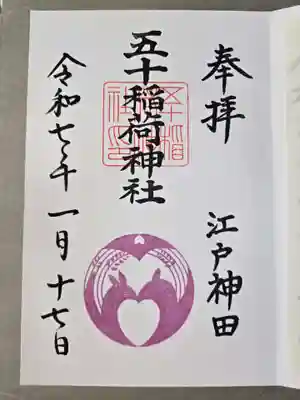 奉拝
江戸神田
五十稲荷神社
令和七年
一月十七日